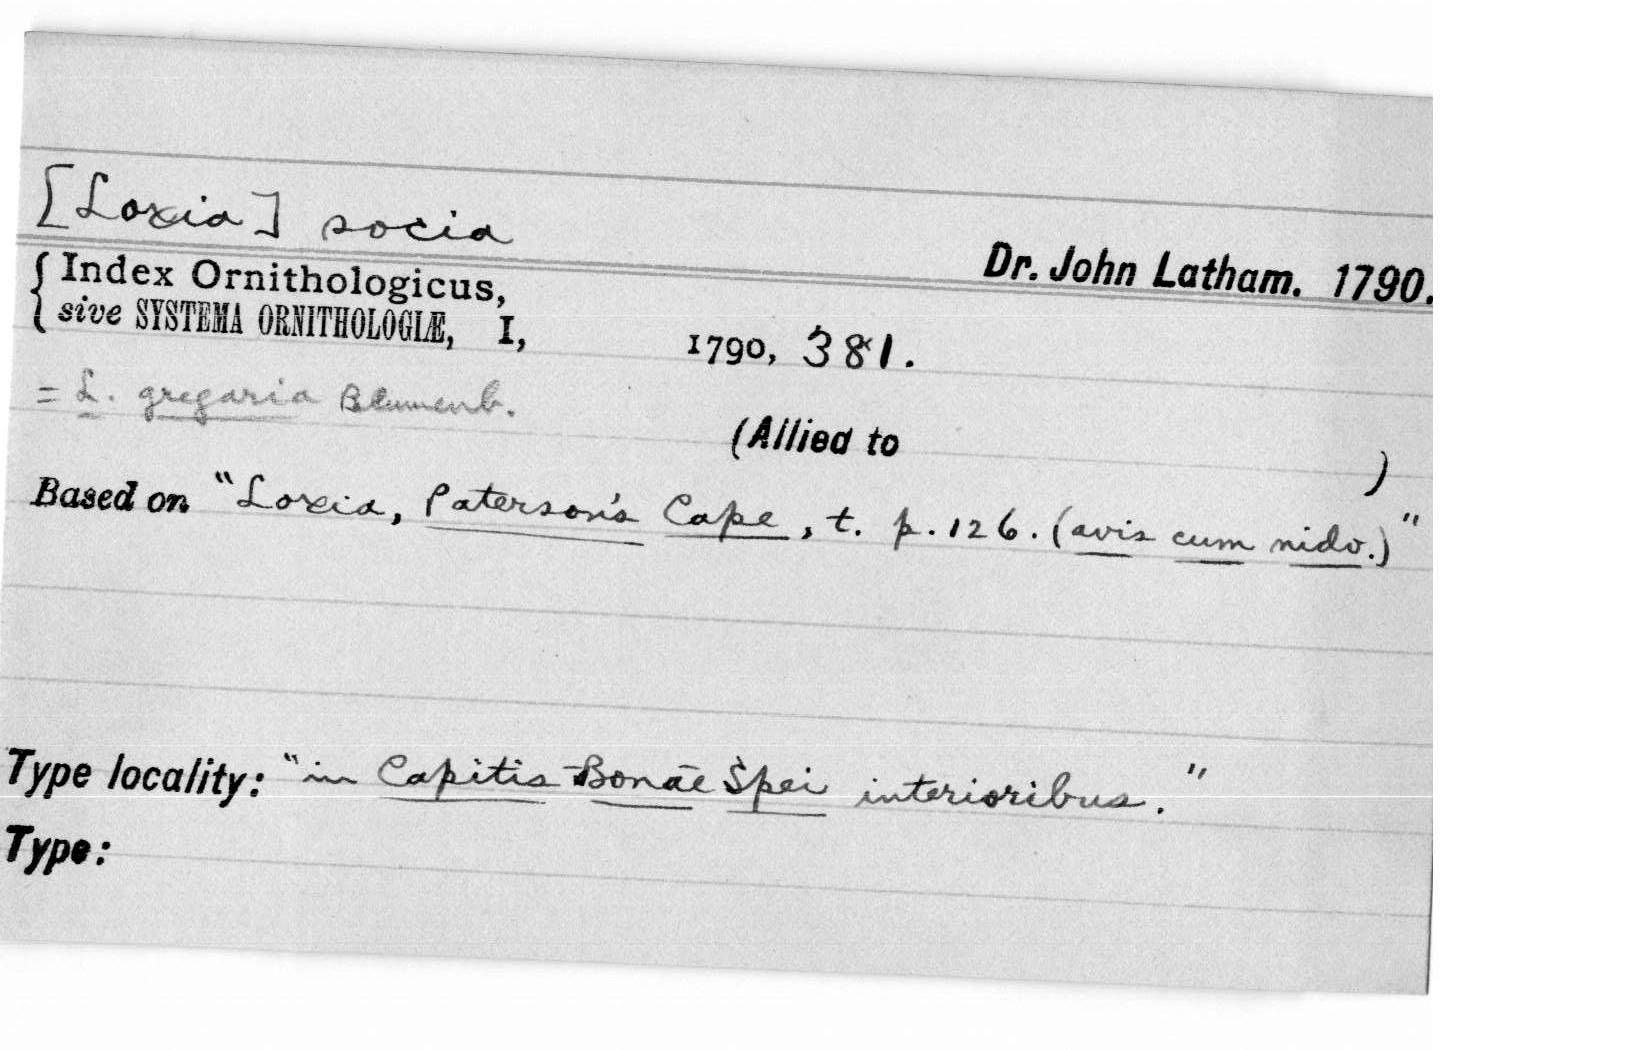 [Loxia] socia
Dr. John Latham. 1790.
Index Ornithologicus,
sive SYSTEMA ORNITHOLOGIÆ, I, 1790, 381.
= L. gregaria Blumenb.
(Allied to )
Based on "Loxia, Paterson's Cape, t. p. 126. (avis cum nido.)"
Type locality: "in Capitis Bonae Spei interioribus."
Type: